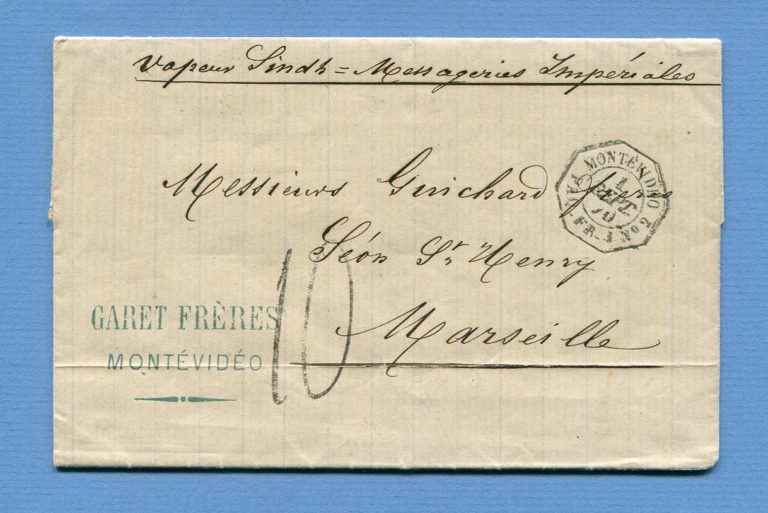 Vapeur Sindh = Messageries Impériales
Messieurs Guichard frères
Séon St. Henry
Marseille
GARET FRÈRES
MONTÉVIDÉO
10
MONTEVIDEO
1
SEPT.
70
PAQ. FR. J Nº 2